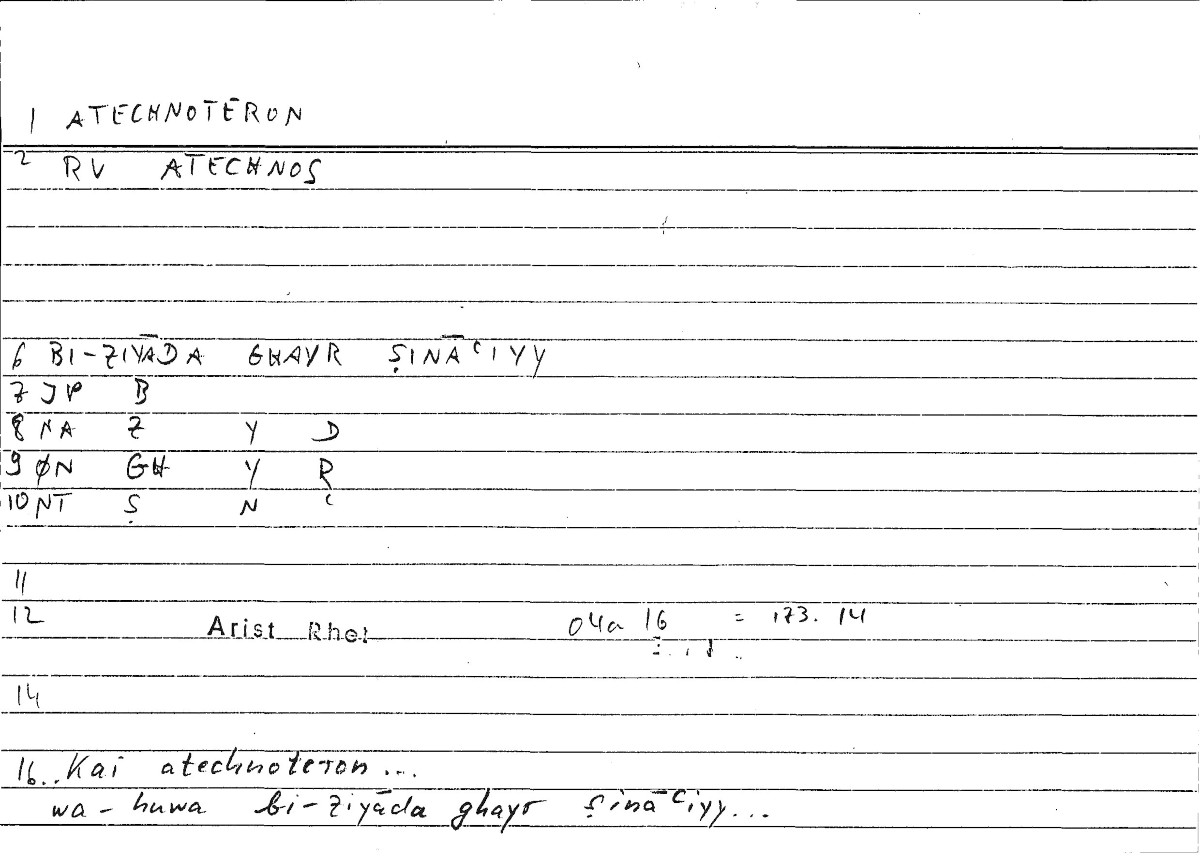 1 ATECHNOTERON
2 RV ATECHNOS
6 BI-ZIYĀDA GHAYR ṢINĀʿIYY
7 JP B
8 NA Z Y D
9 ØN GH Y R
10 NT Ṣ N ʿ
11
12 Arist Rhet 04a 16 = 173.14
14
16.. Kai atechnoteron...
wa-huwa bi-ziyāda ghayr ṣināʿiyy...